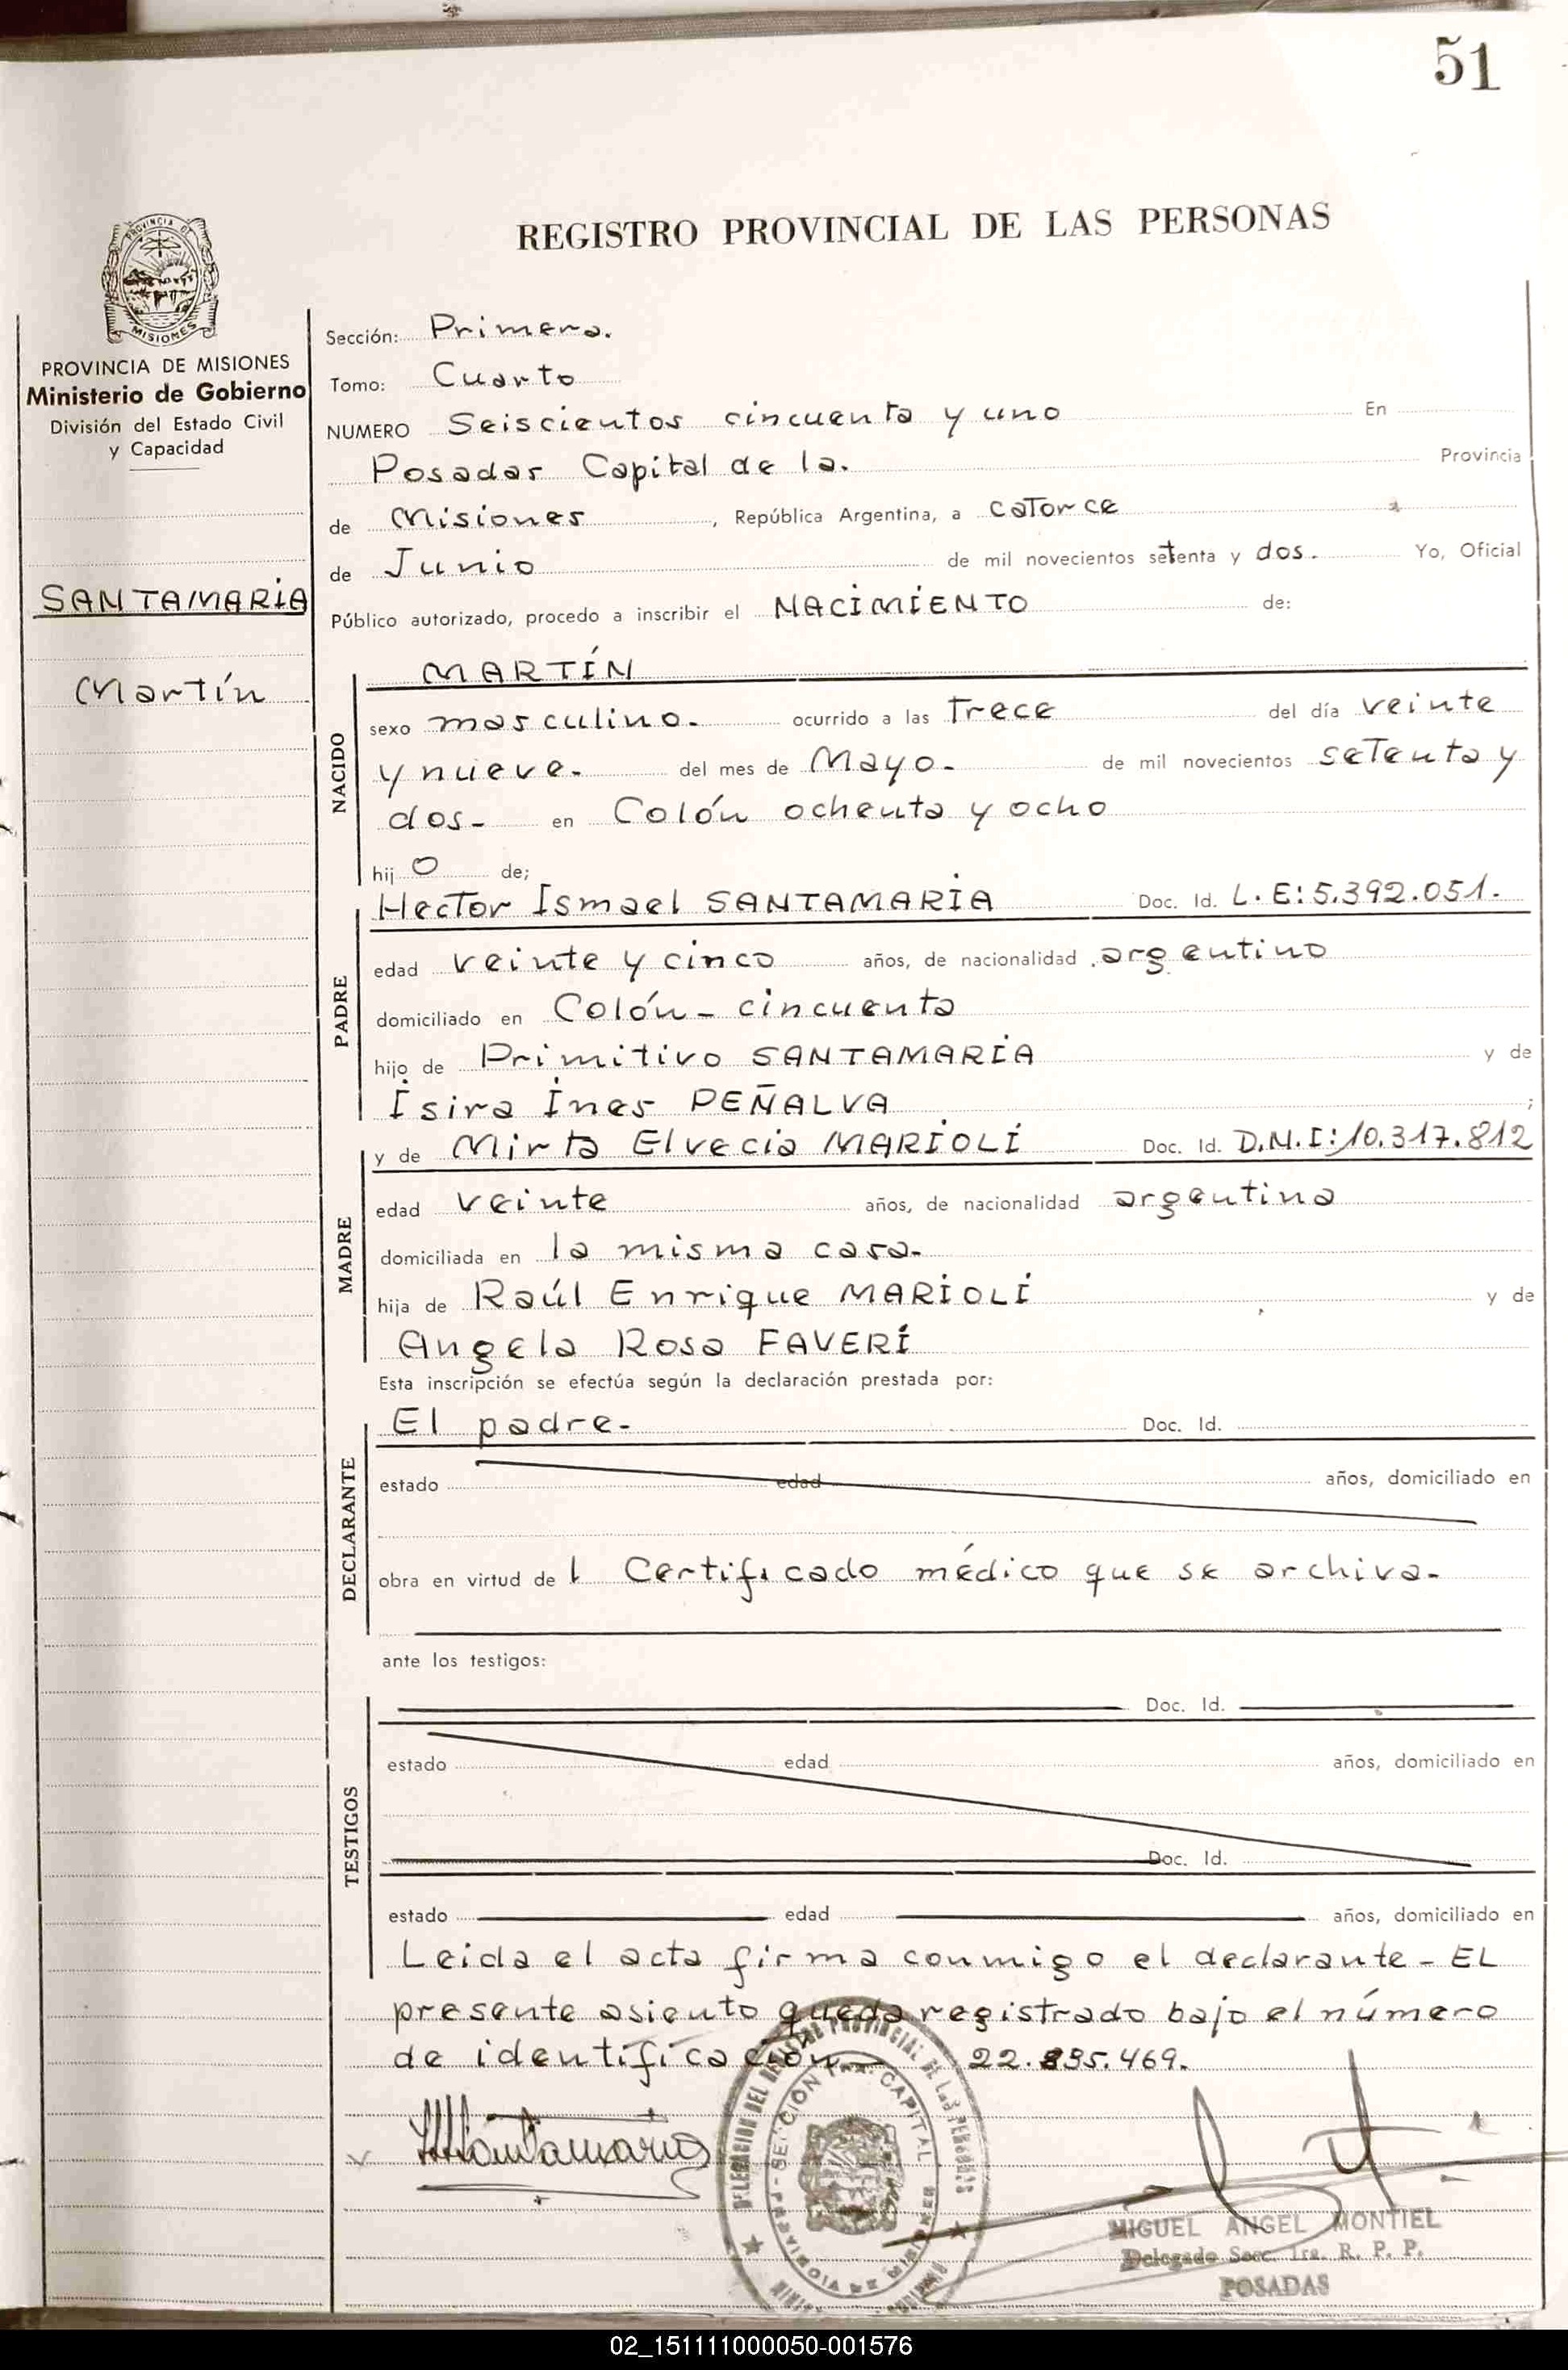 51
REGISTRO PROVINCIAL DE LAS PERSONAS
PROVINCIA DE MISIONES
PROVINCIA DE MISIONES
Ministerio de Gobierno
División del Estado Civil
y Capacidad
SANTAMARIA
Martín
Sección: Primera.
Tomo: Cuarto
NUMERO Seiscientos cincuenta y uno En
Posadas Capital de la. Provincia
de Misiones, República Argentina, a catorce
de Junio de mil novecientos setenta y dos. Yo, Oficial
Público autorizado, procedo a inscribir el NACIMIENTO de:
NACIDO
MARTÍN
sexo masculino. ocurrido a las Trece del día veinte
y nueve. del mes de Mayo. de mil novecientos setenta y
dos. en Colón ochenta y ocho
hij o de;
PADRE
Hector Ismael SANTAMARIA Doc. Id. L.E: 5.392.051.
edad veinte y cinco años, de nacionalidad argentino
domiciliado en Colón - cincuenta
hijo de Primitivo SANTAMARIA y de
Isira Ines PEÑALVA ;
MADRE
y de Mirta Elvecia MARIOLI Doc. Id. D.N.I: 10.317.812
edad veinte años, de nacionalidad argentina
domiciliada en la misma casa.
hija de Raúl Enrique MARIOLI y de
Angela Rosa FAVERI
Esta inscripción se efectúa según la declaración prestada por:
DECLARANTE
El padre. Doc. Id.
estado edad años, domiciliado en
obra en virtud de l Certificado médico que se archiva.
ante los testigos:
TESTIGOS
Doc. Id.
estado edad años, domiciliado en
Doc. Id.
estado edad años, domiciliado en
Leida el acta firma conmigo el declarante - EL
presente asiento queda registrado bajo el número
de identificación 22.835.469.
DELEGACION DEL REGISTRO PROVINCIAL DE LAS PERSONAS
SECCION 1ra. CAPITAL
PROVINCIA DE MISIONES
MIGUEL ANGEL MONTIEL
Delegado Secc. 1ra. R. P. P.
POSADAS
02_151111000050-001576